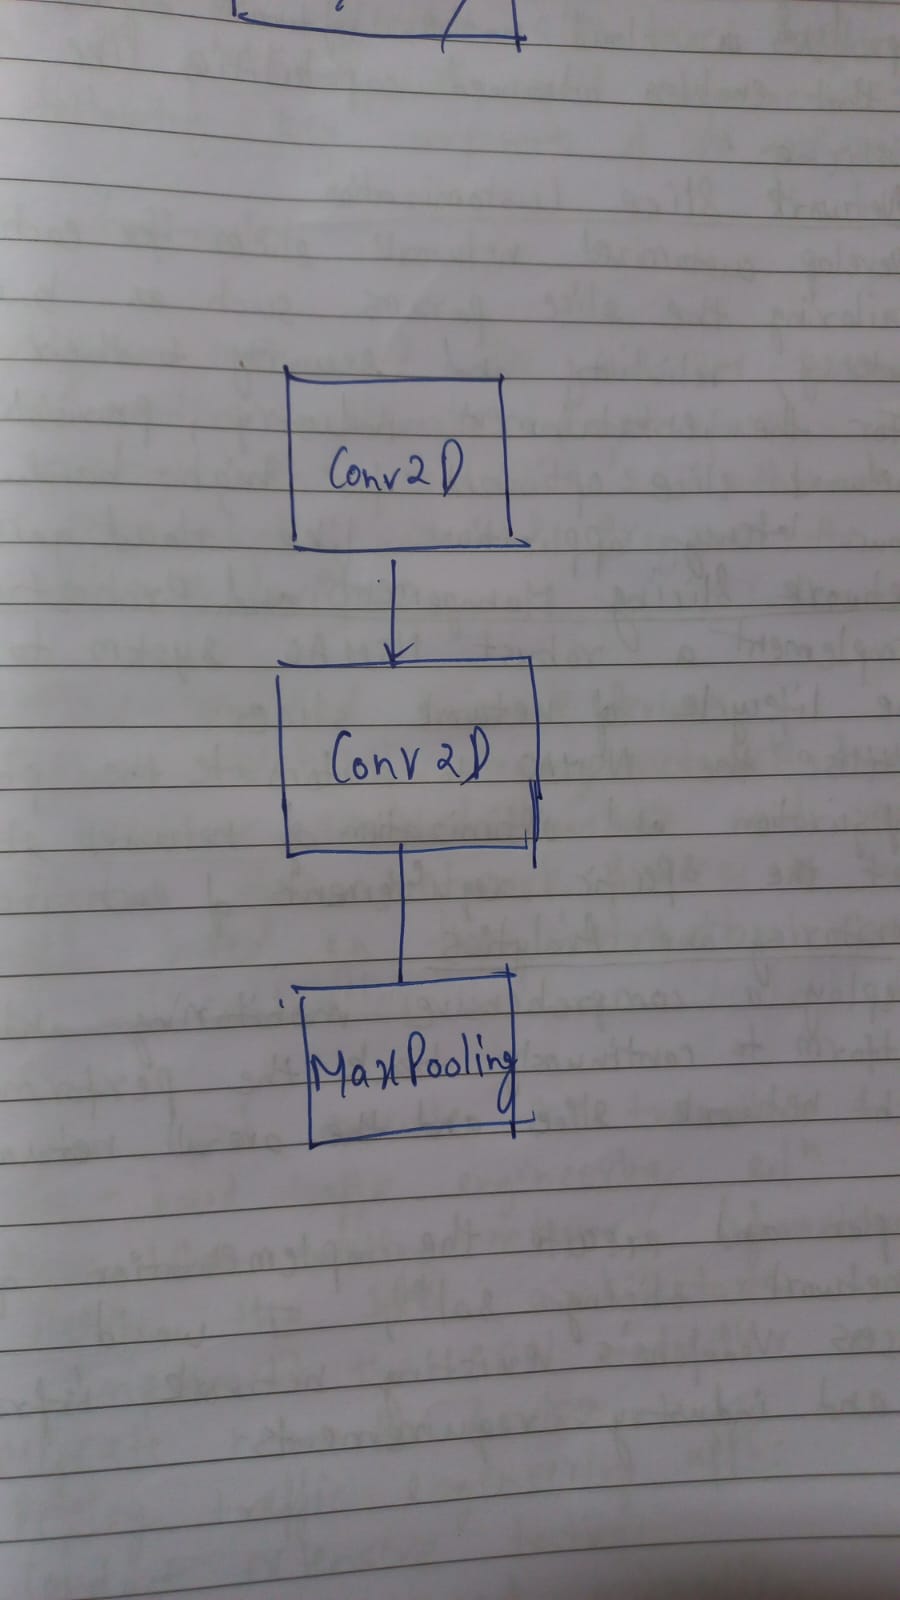 Conv2D
Conv2D
MaxPooling